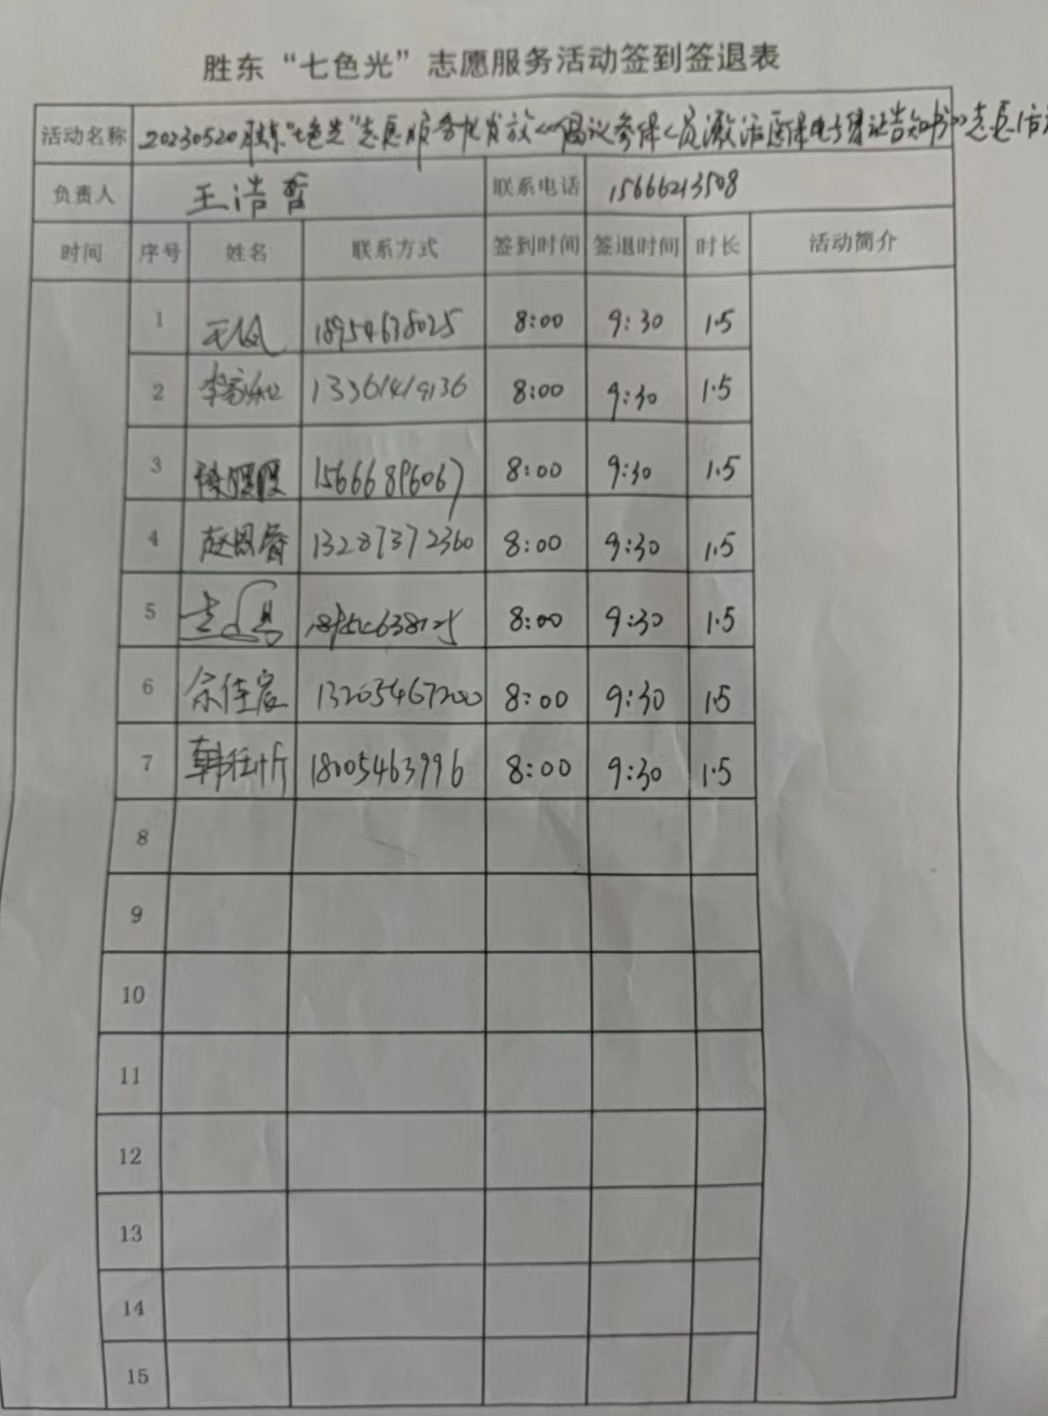 胜东“七色光”志愿服务活动签到签退表
活动名称 20230520胜东“七色光”志愿服务队发放《倡议参保人员激活医保电子凭证告知书》志愿活动
负责人 王浩哲 联系电话 15666213508
时间 序号 姓名 联系方式 签到时间 签退时间 时长 活动简介
1 18954638025 8:00 9:30 1.5
2 13361419136 8:00 9:30 1.5
3 15666896067 8:00 9:30 1.5
4 赵恩睿 13287372360 8:00 9:30 1.5
5 8:00 9:30 1.5
6 佳宸 13205467200 8:00 9:30 1.5
7 韩 18005463996 8:00 9:30 1.5
8
9
10
11
12
13
14
15